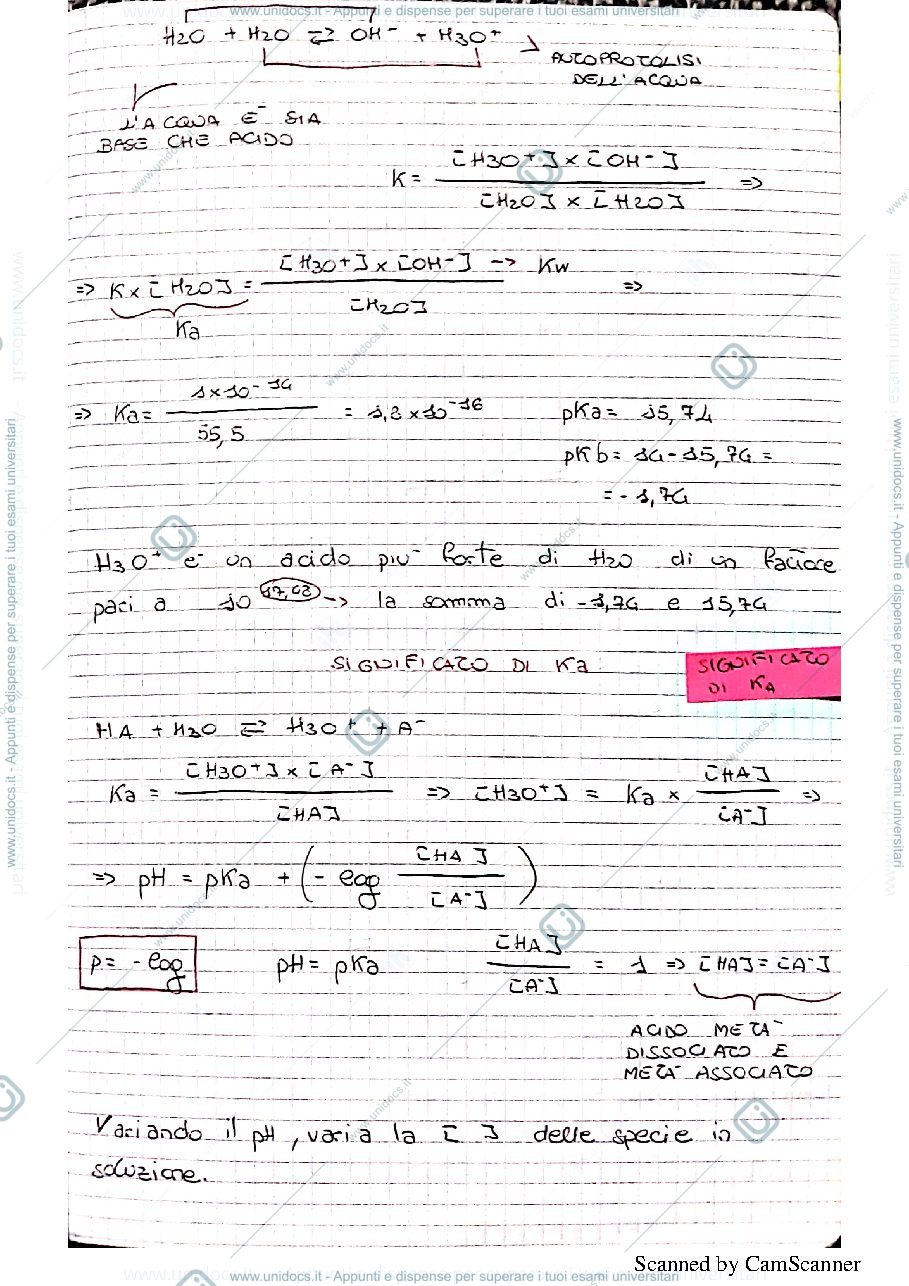 www.unidocs.it - Appunti e dispense per superare i tuoi esami universitari
H2O + H2O ⇄ OH⁻ + H3O⁺
AUTOPROTOLISI
DELL'ACQUA
L'ACQUA E' SIA
BASE CHE ACIDO
K = [H3O+] x [OH-] / [H2O] x [H2O] =>
=> K x [H2O] = [H3O+] x [OH-] / [H2O] -> Kw =>
Ka
=> Ka = 1x10⁻¹⁴ / 55,5 = 1,8 x10⁻¹⁶ pKa = 15,74
pKb = 14-15,74 =
= - 1,74
H3O⁺ e' un acido piu' forte di H2O di un fattore
pari a 10 -> la somma di -1,74 e 15,74
SIGNIFICATO DI Ka
SIGNIFICATO
DI KA
HA + H2O ⇄ H3O⁺ + A⁻
Ka = [H3O+] x [A-] / [HA] => [H3O+] = Ka x [HA] / [A-] =>
=> pH = pKa + (- log [HA] / [A-])
p= -log pH = pKa [HA] / [A-] = 1 => [HA] = [A-]
ACIDO META'
DISSOCIATO E
META' ASSOCIATO
Variando il pH, varia la [ ] delle specie in
soluzione.
Scanned by CamScanner
www.unidocs.it - Appunti e dispense per superare i tuoi esami universitari